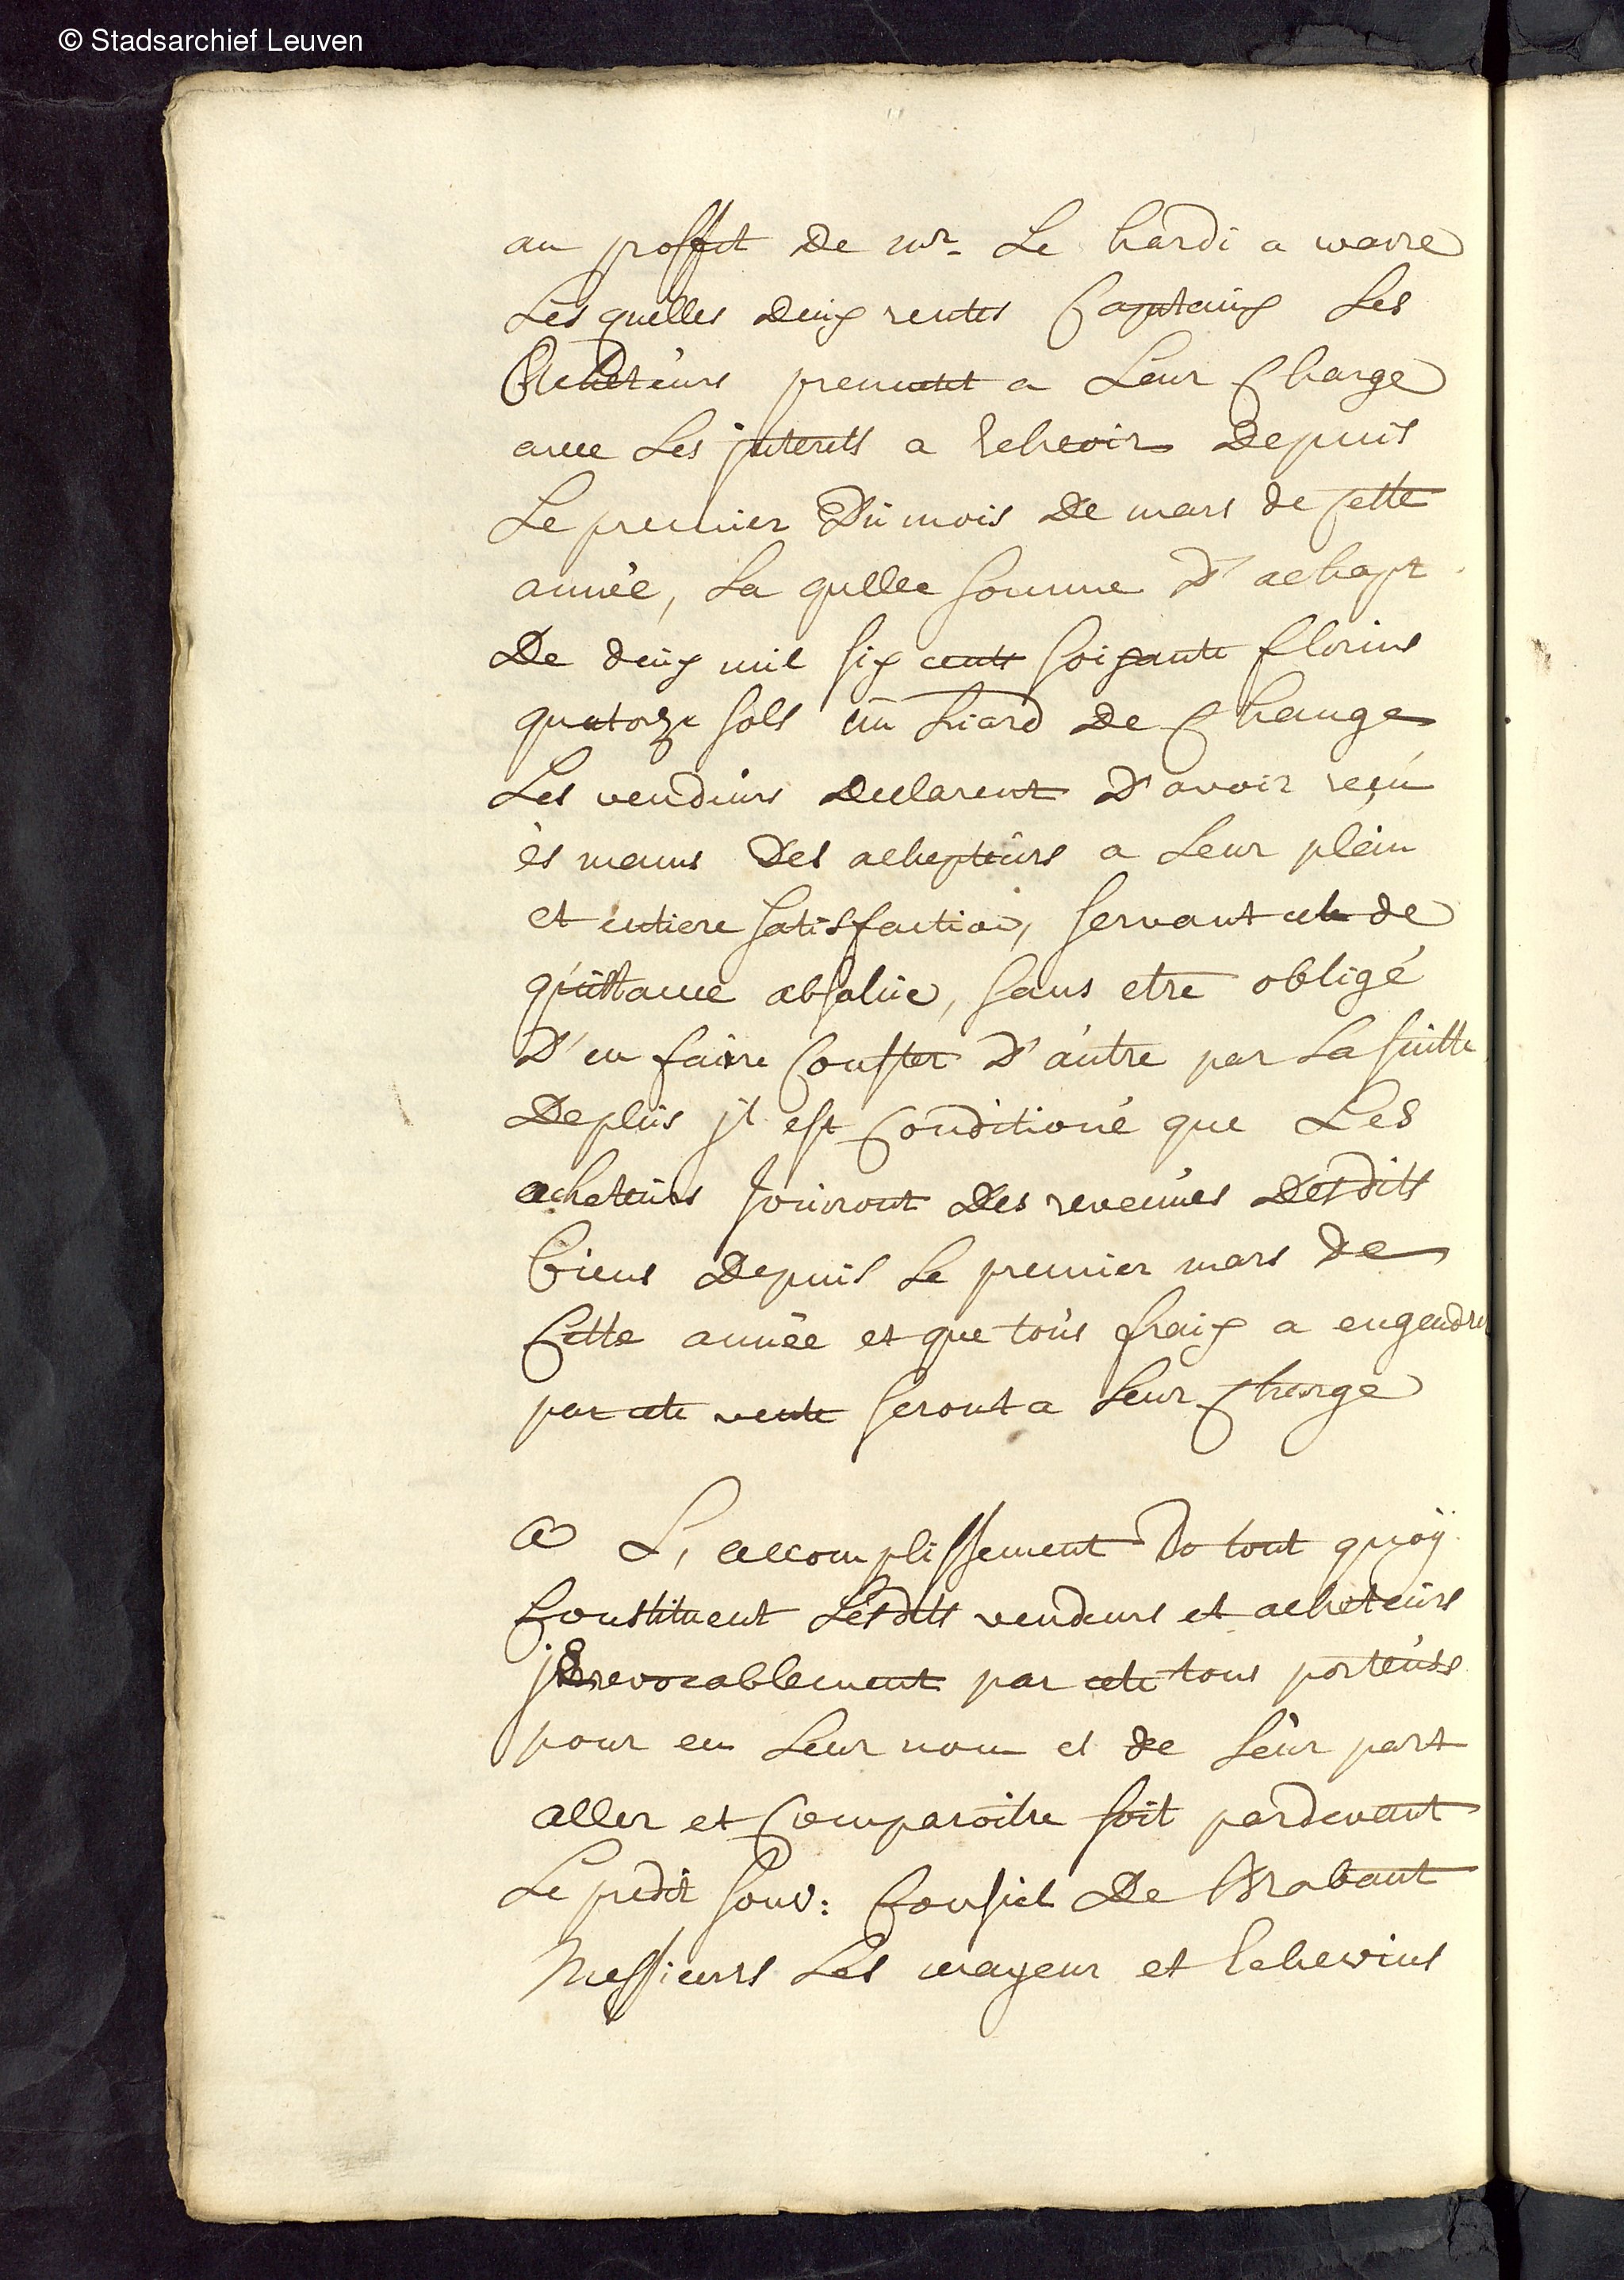 © Stadsarchief Leuven
au proffit De mr. Le hardi a wavre
Les quelles deux rentes Capitaux Les
Acheteurs prennent a Leur Charge
avec Les jnterets a Echeoir Depuis
Le premier Du mois De mars de Cette
année, La qu'elle somme D'achapt
De deux mil six cents soixante florins
quatorze sols un Liard De Change
Les vendeurs Declarent D'avoir reçu
ès mains Des achepteurs a Leur plein
et entiere satisfaction, servant cete de
quittance absolue, sans etre obligé
D'en faire Conster D'autre par La suitte
Deplus jl est Conditioné que Les
acheteurs Jouiront Des revenues Desdits
biens Depuis Le premier mars De
Cette année et que tous fraix a engendrer
par cete vente seront a Leur Charge
A L'accomplissement De tout quoÿ
Constituent Lesdits vendeurs et acheteurs
jrrevocablement par cete tous porteurs
pour en Leur nom et de Leur part
aller et Comparoitre soit pardevant
Le predit souv: Consiel De Brabant
Messieurs Les mayeur et Echevins